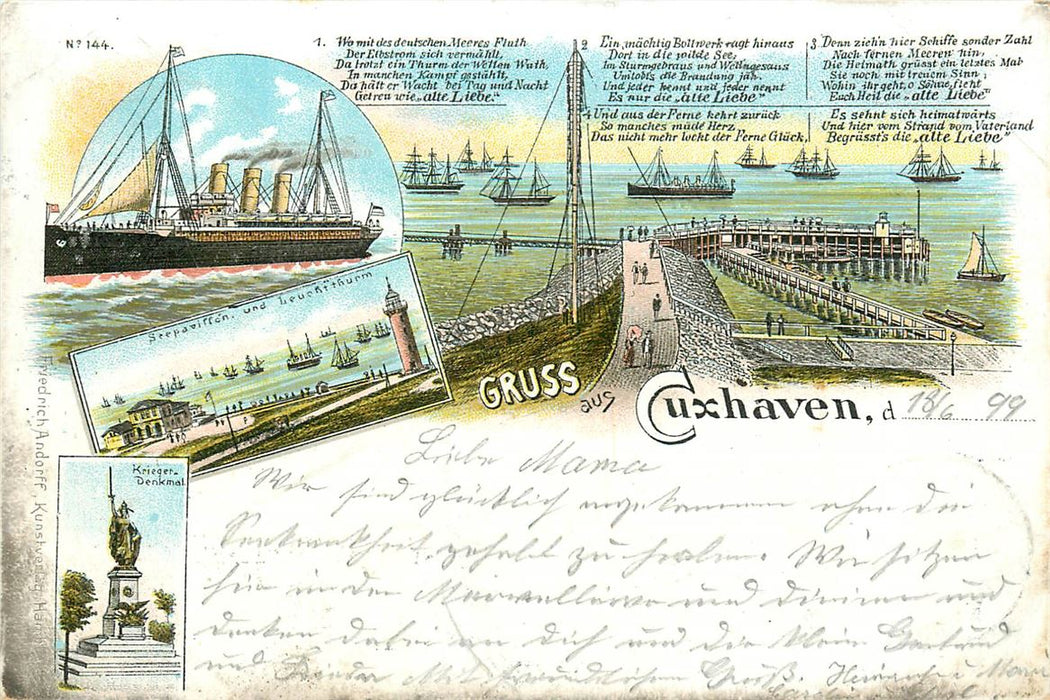 Nº 144.
1. Wo mit des deutschen Meeres Fluth
Der Elbstrom sich vermählt,
Da trotzt ein Thurm der Wellen Wuth,
In manchen Kampf gestählt,
Da hält er Wacht bei Tag und Nacht
Getreu wie „alte Liebe."
2 Ein mächtig Bollwerk ragt hinaus
Dort in die wilde See,
Im Sturmgebraus und Wellngesaus
Umtobts die Brandung jäh.
Und jeder kennt und jeder nennt
Es nur die „alte Liebe"
3 Denn zieh'n hier Schiffe sonder Zahl
Nach fernen Meeren hin,
Die Heimath grüsst ein letztes Mal
Sie noch mit treuem Sinn;
Wohin ihr geht, o Söhne, fleht
Euch Heil die „alte Liebe"
4 Und aus der Ferne kehrt zurück
So manches müde Herz,
Das nicht mehr lockt der Ferne Glück,
Es sehnt sich heimatwärts
Und hier vom Strand vom Vaterland
Begrüsst's die „alte Liebe"
Seepavillon und Leuchtthurm
Krieger-
Denkmal
GRUSS
aus
Cuxhaven, d 18/6 99
Friedrich Andorff, Kunstverlag
Liebe Mama
Wir sind glücklich angekommen ohne die
Seekrankheit gehabt zu haben. Wir sitzen
hier in der und dinieren und
denken dabei an Dich und
und Mit freundlichem Gruß.